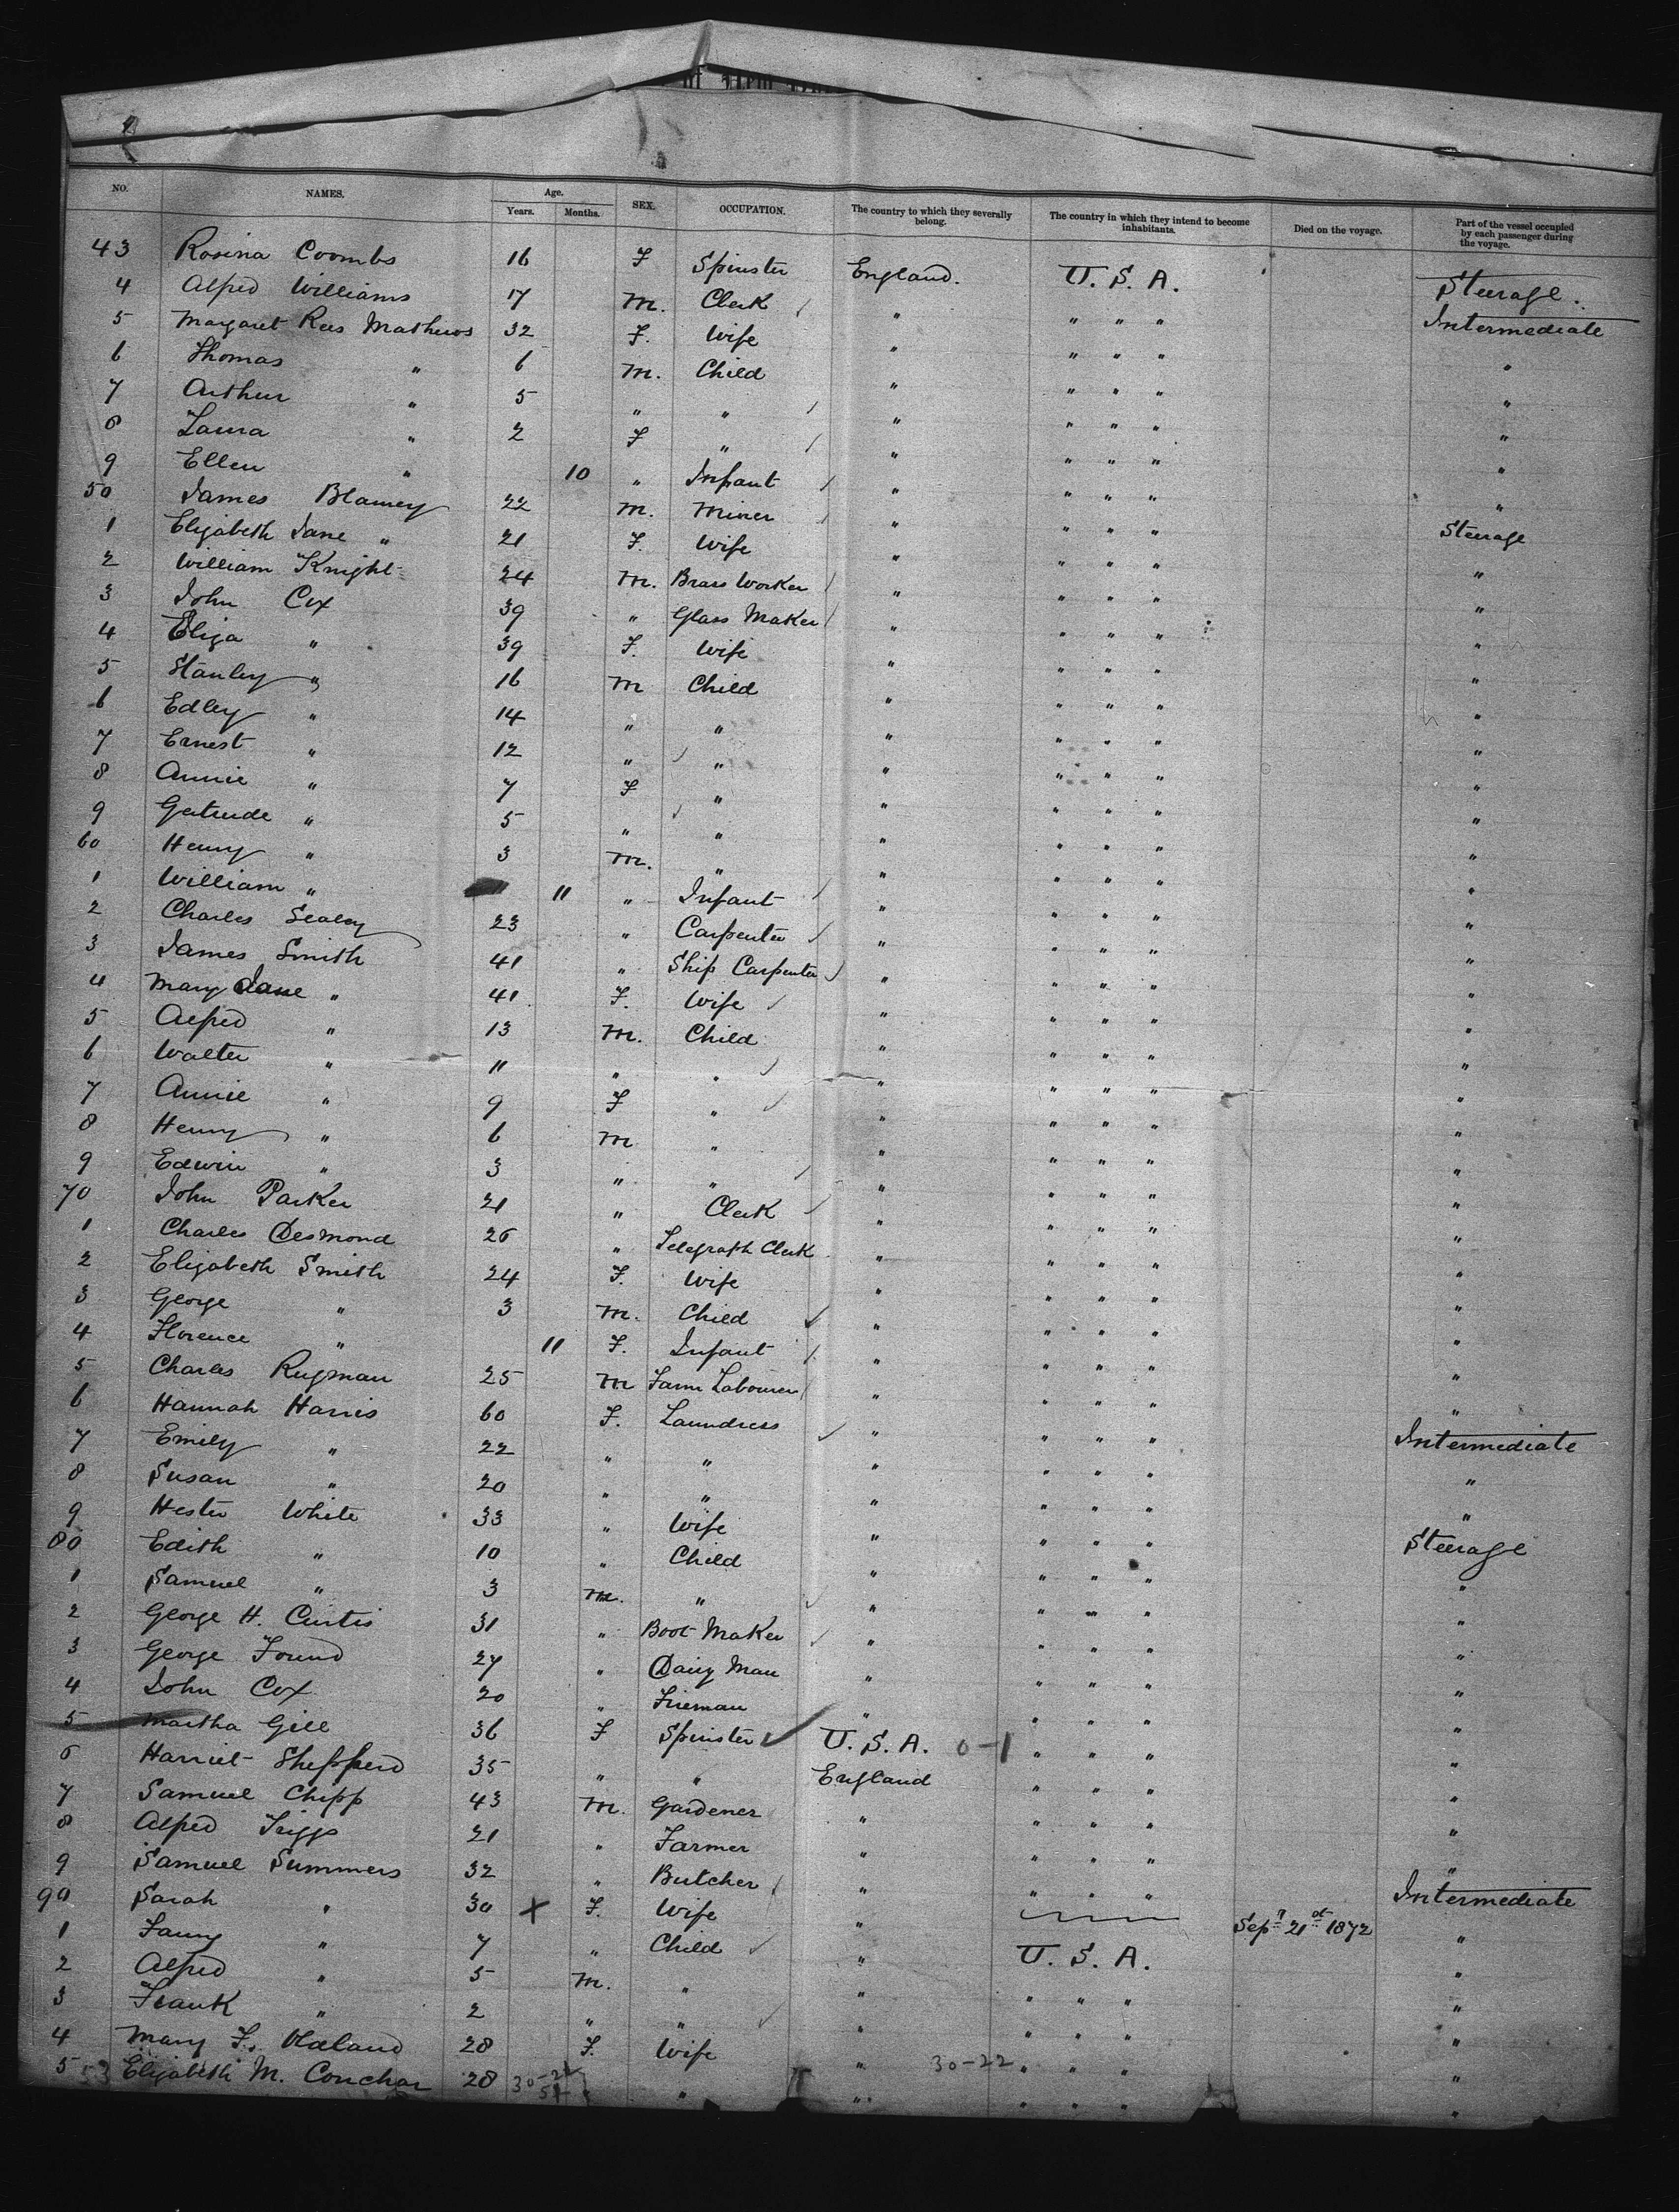 NO. NAMES. Age. Years. Months. SEX. OCCUPATION. The country to which they severally belong. The country in which they intend to become inhabitants. Died on the voyage. Part of the vessel occupied by each passenger during the voyage.
43 Rosina Coombs 16 F Spinster England. U. S. A. Steerage.
4 Alfred Williams 17 M. Clerk " " " " Intermediate
5 Margaret Rees Mathews 32 F. Wife " " " " "
6 Thomas " 6 M. Child " " " " "
7 Arthur " 5 " " " " " " "
8 Laura " 2 F " " " " " "
9 Ellen " 10 " Infant " " " " "
50 James Blamey 22 M. Miner " " " " Steerage
1 Elizabeth Jane " 21 F. Wife " " " " "
2 William Knight 24 M. Brass Worker " " " " "
3 John Cox 39 " Glass Maker " " " " "
4 Eliza " 39 F. Wife " " " " "
5 Stanley " 16 M Child " " " " "
6 Edley " 14 " " " " " " "
7 Ernest " 12 " " " " " " "
8 Annie " 7 F " " " " " "
9 Gertrude " 5 " " " " " " "
60 Henry " 3 M. " " " " " "
1 William " 11 " Infant " " " " "
2 Charles Sealey 23 " Carpenter " " " " "
3 James Smith 41 " Ship Carpenter " " " " "
4 Mary Jane " 41 F. Wife " " " " "
5 Alfred " 13 M. Child " " " " "
6 Walter " 11 " " " " " " "
7 Annie " 9 F " " " " " "
8 Henry " 6 M " " " " " "
9 Edwin " 3 " " " " " " "
70 John Parker 21 " Clerk " " " " "
1 Charles Desmond 26 " Telegraph Clerk " " " " "
2 Elizabeth Smith 24 F. Wife " " " " "
3 George " 3 M. Child " " " " "
4 Florence " 11 F. Infant " " " " "
5 Charles Rugman 25 M Farm Labourer " " " " "
6 Hannah Harris 60 F. Laundress " " " " Intermediate
7 Emily " 22 " " " " " " "
8 Susan " 20 " " " " " " "
9 Hester White 33 " Wife " " " " Steerage
80 Edith " 10 " Child " " " " "
1 Samuel " 3 M. " " " " " "
2 George H. Curtis 31 " Boot Maker " " " " "
3 George Found 27 " Dairy Man " " " " "
4 John Cox 20 " Fireman " " " " "
5 Martha Gill 36 F Spinster U. S. A. 0-1 " " " "
6 Harriet Shepperd 35 " " England " " " "
7 Samuel Chipp 43 M. Gardener " " " " "
8 Alfred Triggs 21 " Farmer " " " " "
9 Samuel Summers 32 " Butcher " " " " Intermediate
90 Sarah " 30 X F. Wife " Sepr 21st 1872 "
1 Fanny " 7 " Child " U. S. A. "
2 Alfred " 5 M. " " " " " "
3 Frank " 2 " " " " " " "
4 Mary F. 28 F. Wife " 30-22 " " " "
5 Elizabeth M. Conchar 28 30-22 " " " " " "